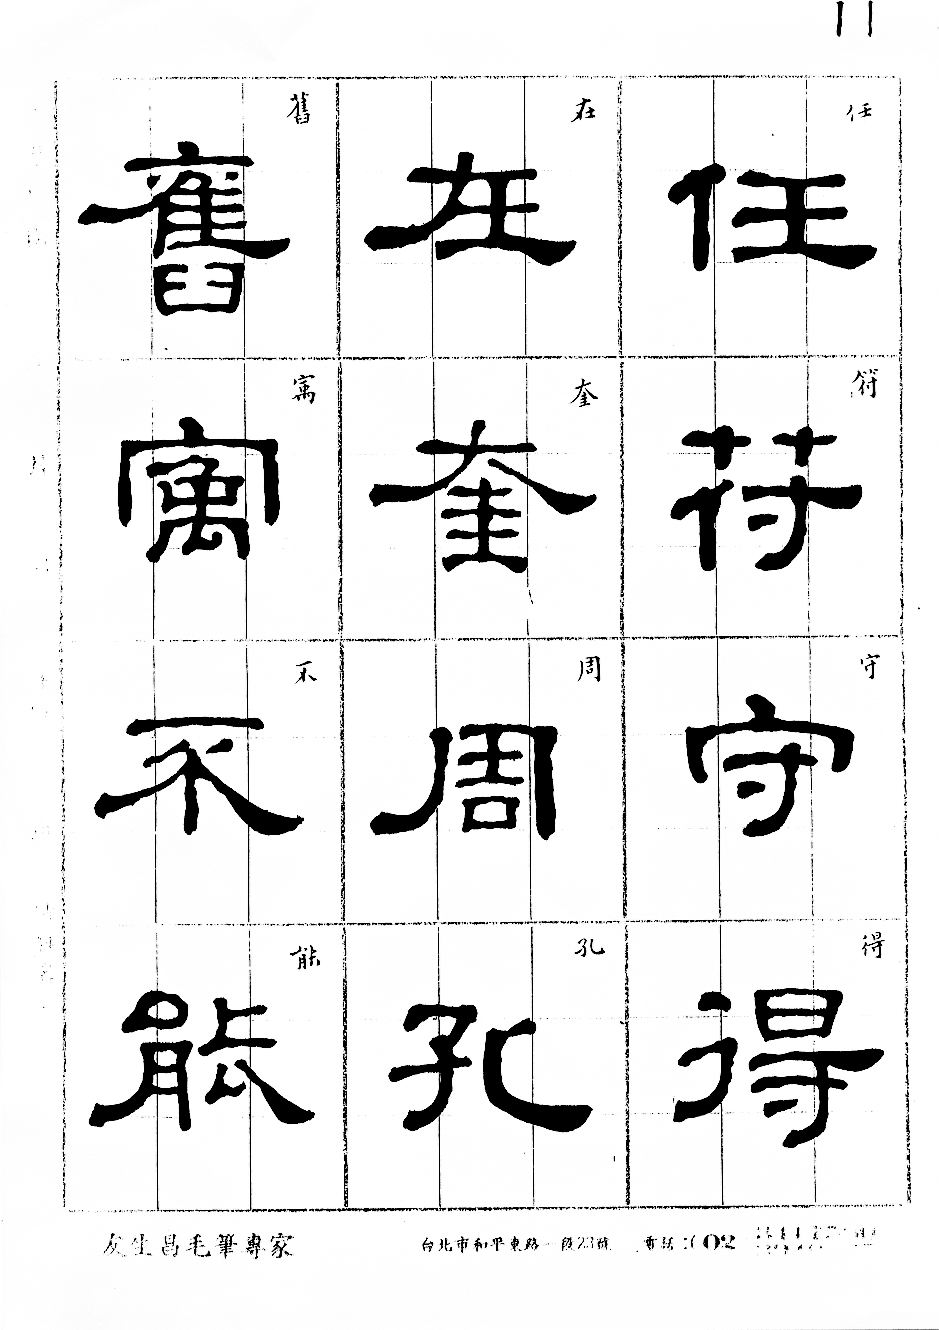 11
任符守得
任符守得
在奎周孔
在奎周孔
舊寓不能
舊寓不能
友生昌毛筆專家 台北市和平東路一段23號 電話:(02